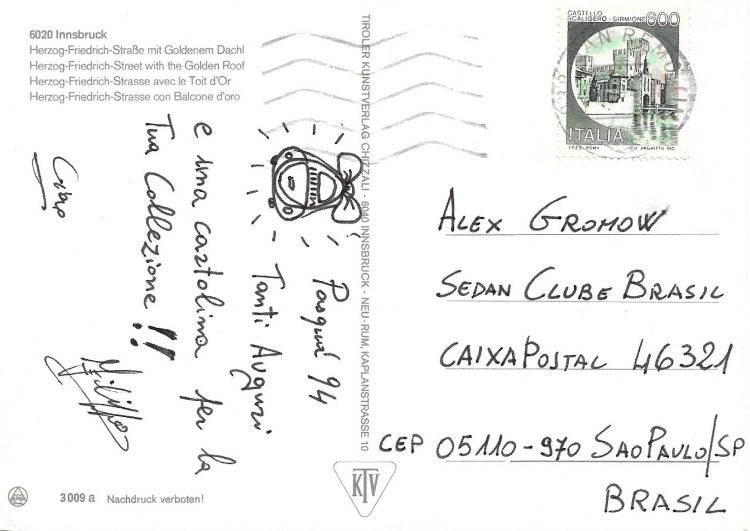 6020 Innsbruck
Herzog-Friedrich-Straße mit Goldenem Dachl
Herzog-Friedrich-Street with the Golden Roof
Herzog-Friedrich-Strasse avec le Toit d'Or
Herzog-Friedrich-Strasse con Balcone d'oro
Pasqua 94
Tanti Auguri
e una cartolina per la
Tua Collezione!!
Ciao
TIROLER KUNSTVERLAG CHIZZALI - 6040 INNSBRUCK - NEU-RUM, KAPLANSTRASSE 10
KTV
CASTELLO
SCALIGERO - SIRMIONE
600
ITALIA
I.P.Z.S. ROMA
SAN REMO
ALEX GROMOW
SEDAN CLUBE BRASIL
CAIXA POSTAL 46321
CEP 05110-970 SAO PAULO/SP
BRASIL
3009 a Nachdruck verboten!